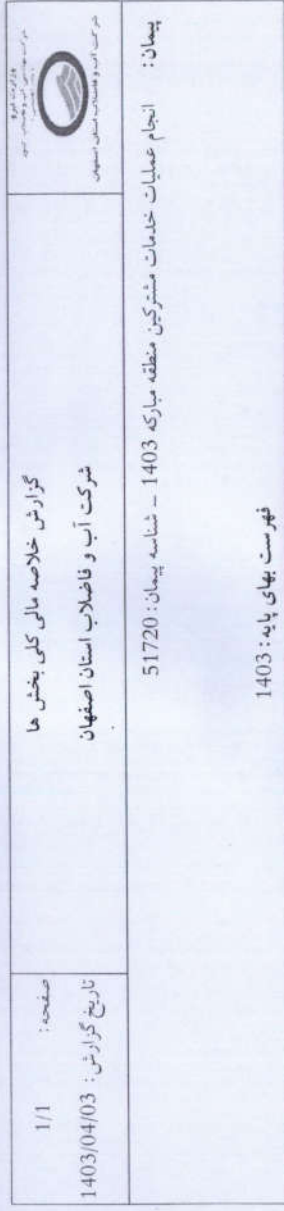 وزارت نیرو
شرکت آب و فاضلاب استان اصفهان
گزارش خلاصه مالی کلی بخش ها
شرکت آب و فاضلاب استان اصفهان
صفحه : 1/1
تاریخ گزارش : 1403/04/03
پیمان : انجام عملیات خدمات مشترکین منطقه مبارکه 1403 – شناسه پیمان : 51720
فهرست بهای پایه : 1403